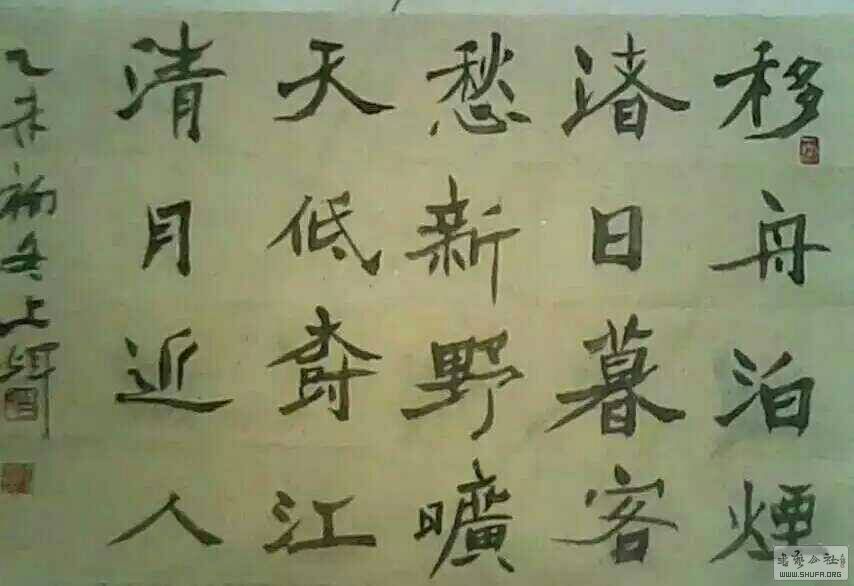 移舟泊煙
渚日暮客
愁新野曠
天低樹江
清月近人
乙未
書藝公社
WWW.SHUFA.ORG